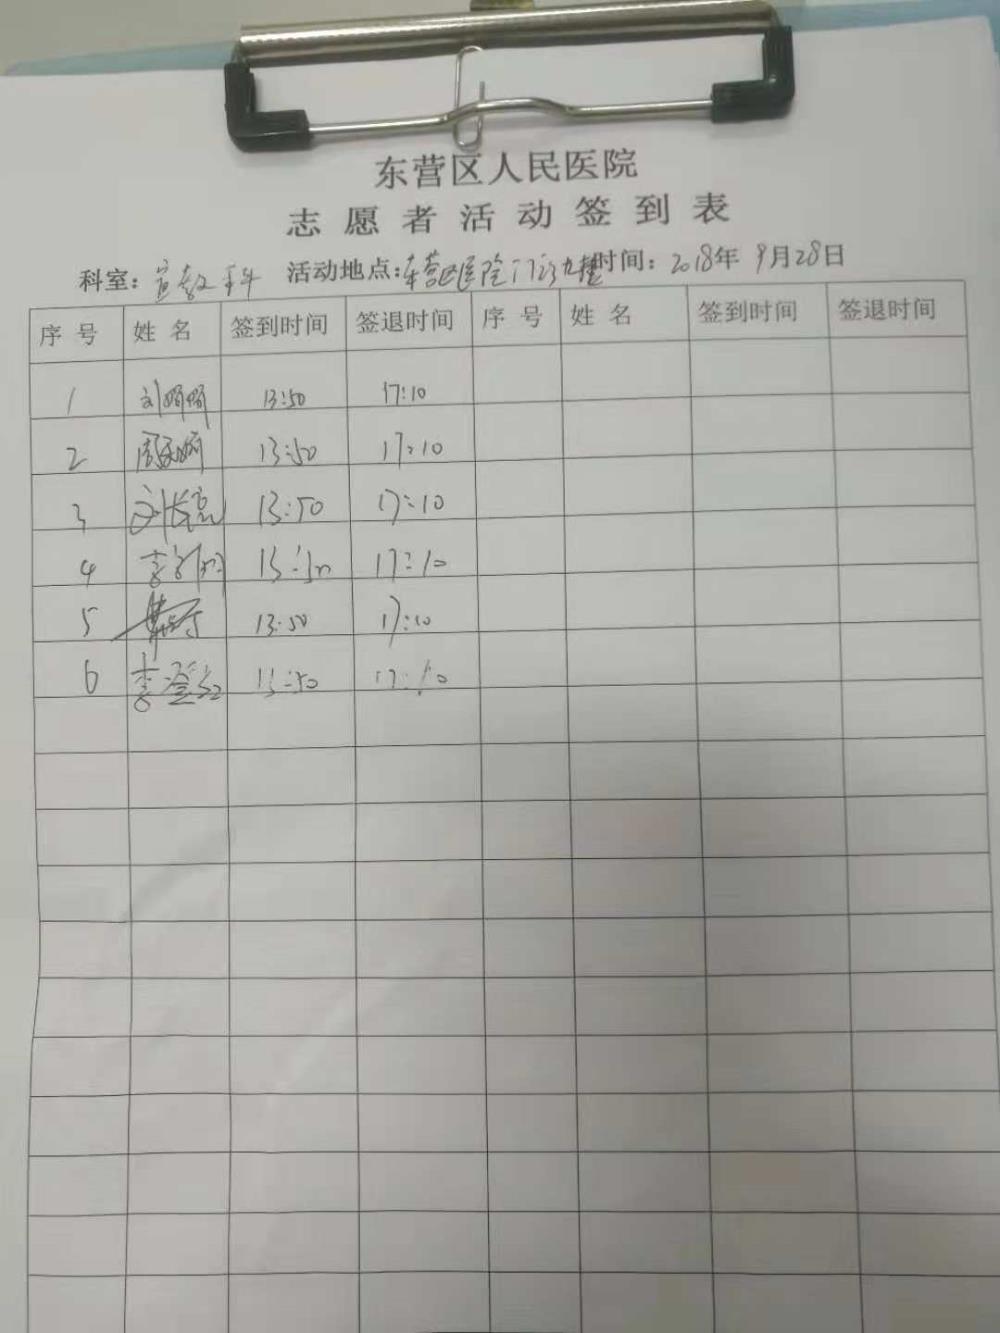 东营区人民医院
志愿者活动签到表
科室：宣教科 活动地点：东营区医院门诊大楼 时间：2018年9月28日
序号 姓名 签到时间 签退时间 序号 姓名 签到时间 签退时间
1 刘娟娟 13:50 17:10
2 13:50 17:10
3 刘长亮 13:50 17:10
4 17:10
5 13:50 17:10
6 李澄红 13:50 17:10